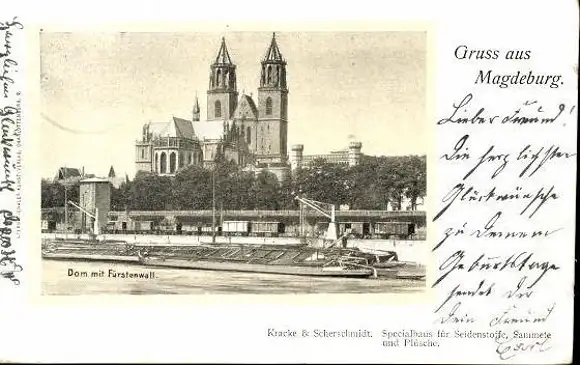 Gruss aus
Magdeburg.
Lieber Freund!
Die herzlichsten
Glückwünsche
zu Deinem
Geburtstage
sendet Dir
Dein Freund
Carl
Dom mit Fürstenwall.
Kracke & Scherschmidt. Specialhaus für Seidenstoffe, Sammete
und Plüsche.
Herzlichen Glückwunsch